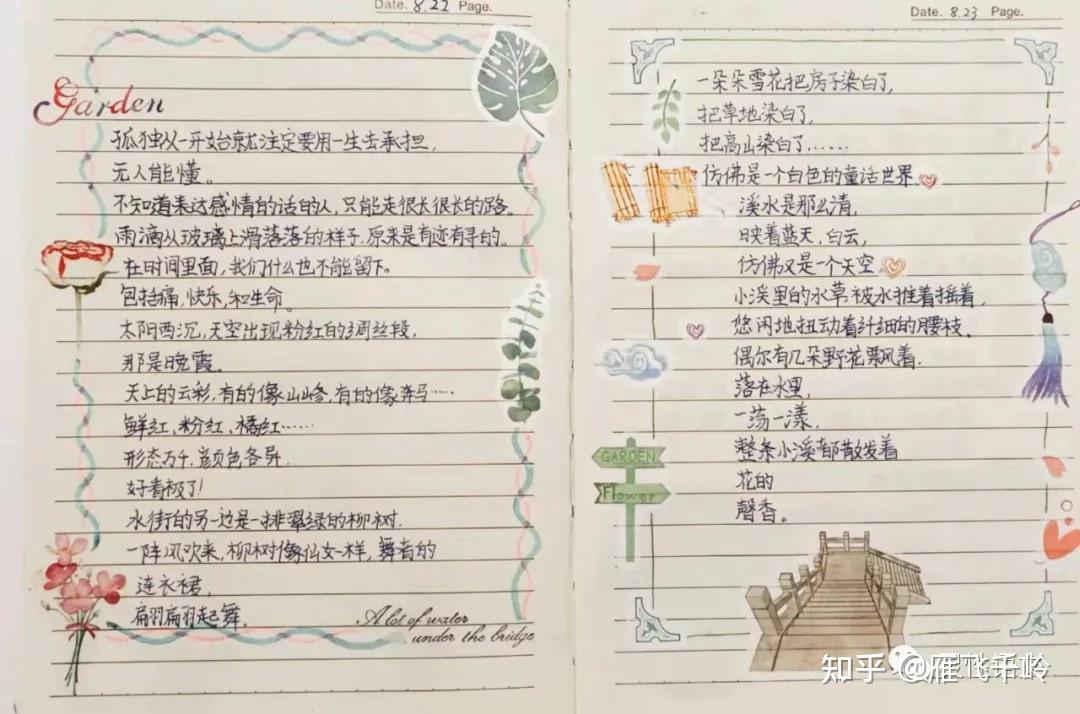 Date. 8.22 Page.
Garden
孤独从一开始就注定要用一生去承担,
无人能懂。
不知道表达感情的话的人,只能走很长很长的路。
雨滴从玻璃上滑落落的样子,原来是有迹有寻的。
在时间里面,我们什么也不能留下。
包括痛,快乐,和生命。
太阳西沉,天空出现粉红的绸丝段,
那是晚霞。
天上的云彩,有的像山峰,有的像奔马……
鲜红、粉红、橘红……
形态万千,颜色各异,
好看极了!
水街的另一边是一排翠绿的柳树,
一阵风吹来,柳树像仙女一样,舞者的
连衣裙,
扁羽扁羽起舞。
A lot of water
under the bridge
Date. 8.23 Page.
一朵朵雪花把房子染白了,
把草地染白了,
把高山染白了……
仿佛是一个白色的童话世界
溪水是那么清,
映着蓝天,白云,
仿佛又是一个天空
小溪里的水草被水推着摇着,
悠闲地扭动着纤细的腰枝。
偶尔有几朵野花飘着,
落在水里,
一荡一漾,
整条小溪都散发着
花的
馨香。
GARDEN
Flower
知乎 @雁飞千岭